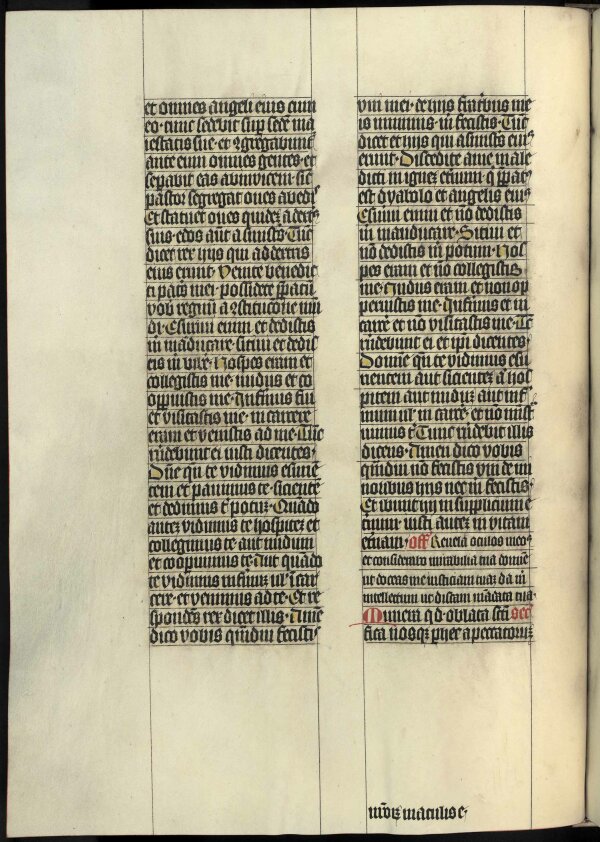 et omnes angeli eius cum
eo · tunc sedebit sup sedē ma
iestatis sue · et ꝯgregabunt᷑
ante eum omnes gentes · et
sepabit eas abinvicem · sic̄
pastor segregat oues ab edis
Et statuet oues quidez a dextꝭ
suis · edos aūt a sinistꝭ · Tūc
dicet rex hijs qui a dextris
eius erunt · Venite benedic
ti patꝭ mei · possidete ꝑpatū
vob regnū a ꝯstitucōne mū
di · Esuriui enim et dedistis
m̄ māducare · sitiui et dedis
tis m̄ bibe · Hospes eram et
collegistis me · nudus et co
opuistis me · Infirmus fui
et visitastis me · in carcere
eram et venistis ad me · Tūc
rn̄debunt ei iusti dicentes ·
Dn̄e qn̄ te vidimus esurie
tem et pauimus te · sicientē
et dedimus t̄ potuz · Quādo
autez vidimus te hospitez et
collegimus te · aut nudum
et coopuimus te · Aut quādo
te vidimus infirmuz ul̄ ī car
cere · et venimus ad te · Et re
spondēs rex dicet illis · Amē
dico vobis qm̄diu fecistis
vni mei · de hijs fratribus me
is minimis · m̄ fecistis · Tūc
dicet et hijs qui a sinistꝭ eiꝰ
erunt · Discedite a me male
dicti in ignez et̄num q̄ ꝑpatꝰ
est dyabolo et angelis eiꝰ
Esuriui enim et nō dedistis
m̄ manducare · Sitiui et
nō dedistis m̄ potum · Hos
pes eram et nō collegistis
me · Nudus eram et non op
peruistis me · Infirmus et in
carc̄e et nō visitastis me · Tc̄
rn̄debunt ei et ipi dicentes ·
Domine qn̄ te vidimus esu
rientem aut sicientez aut hos
pitem aut nudūz aut infir
mum ul̄ in carc̄e · et nō minist
mimus t̄ · Tunc rn̄debit illis
dicens · Amen dico vobis
qm̄diu nō fecistis vni de mi
noribus hijs nec m̄ fecistis ·
Et ibunt hij in supplicium e
t̄num · iusti autez in vitam
et̄nam · off Reuela oculos meos
et considerabo mirabilia tua domine
ut doceas me iusticiam tuaz da m̄
intellectum ut discam mādata tua ·
Munera qd · oblata scti sec̄
fica nosqz ꝑ hec a peccatoruz
nr̄oꝝ maculis e ·